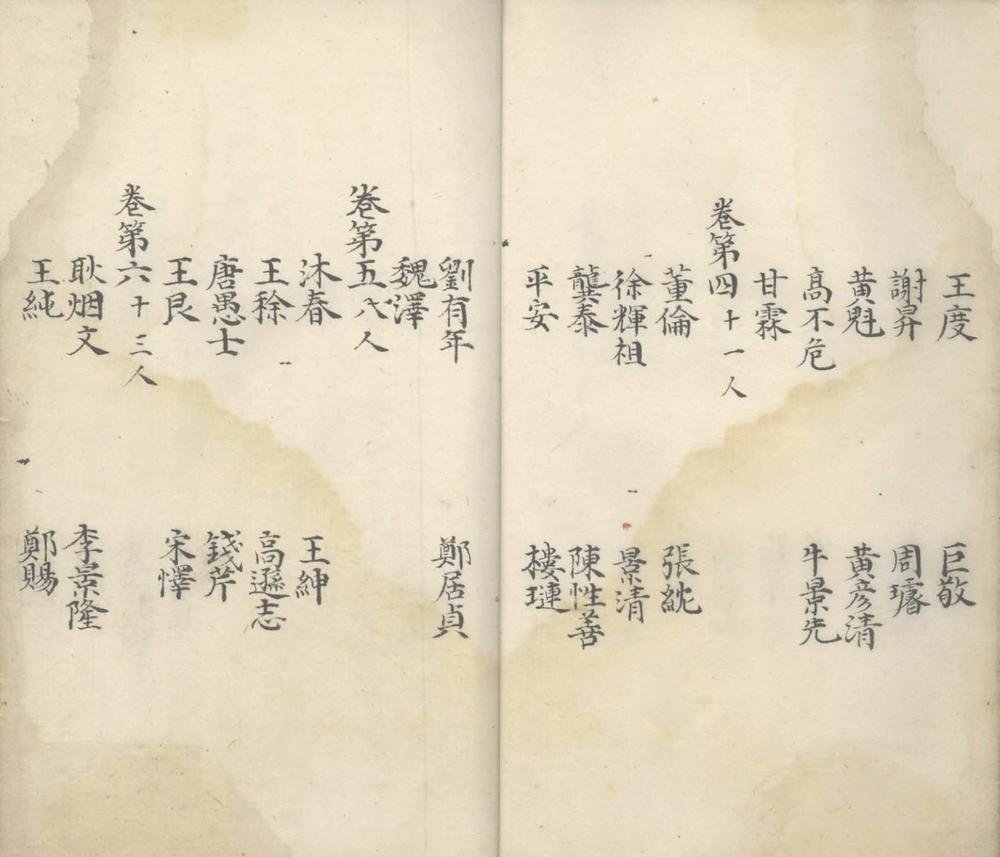 王度 巨敬
謝昇 周璿
黄魁 黄彦清
高不危 牛景先
甘霖
卷第四十一人
董倫 張紞
徐輝祖 景清
龔泰 陳性善
平安 樓璉
劉有年 鄭居貞
魏澤
卷第五八人
沐春 王紳
王稌 高遜志
唐愚士 錢芹
王艮 宋懌
卷第六十三人
耿烟文 李景隆
王純 鄭賜